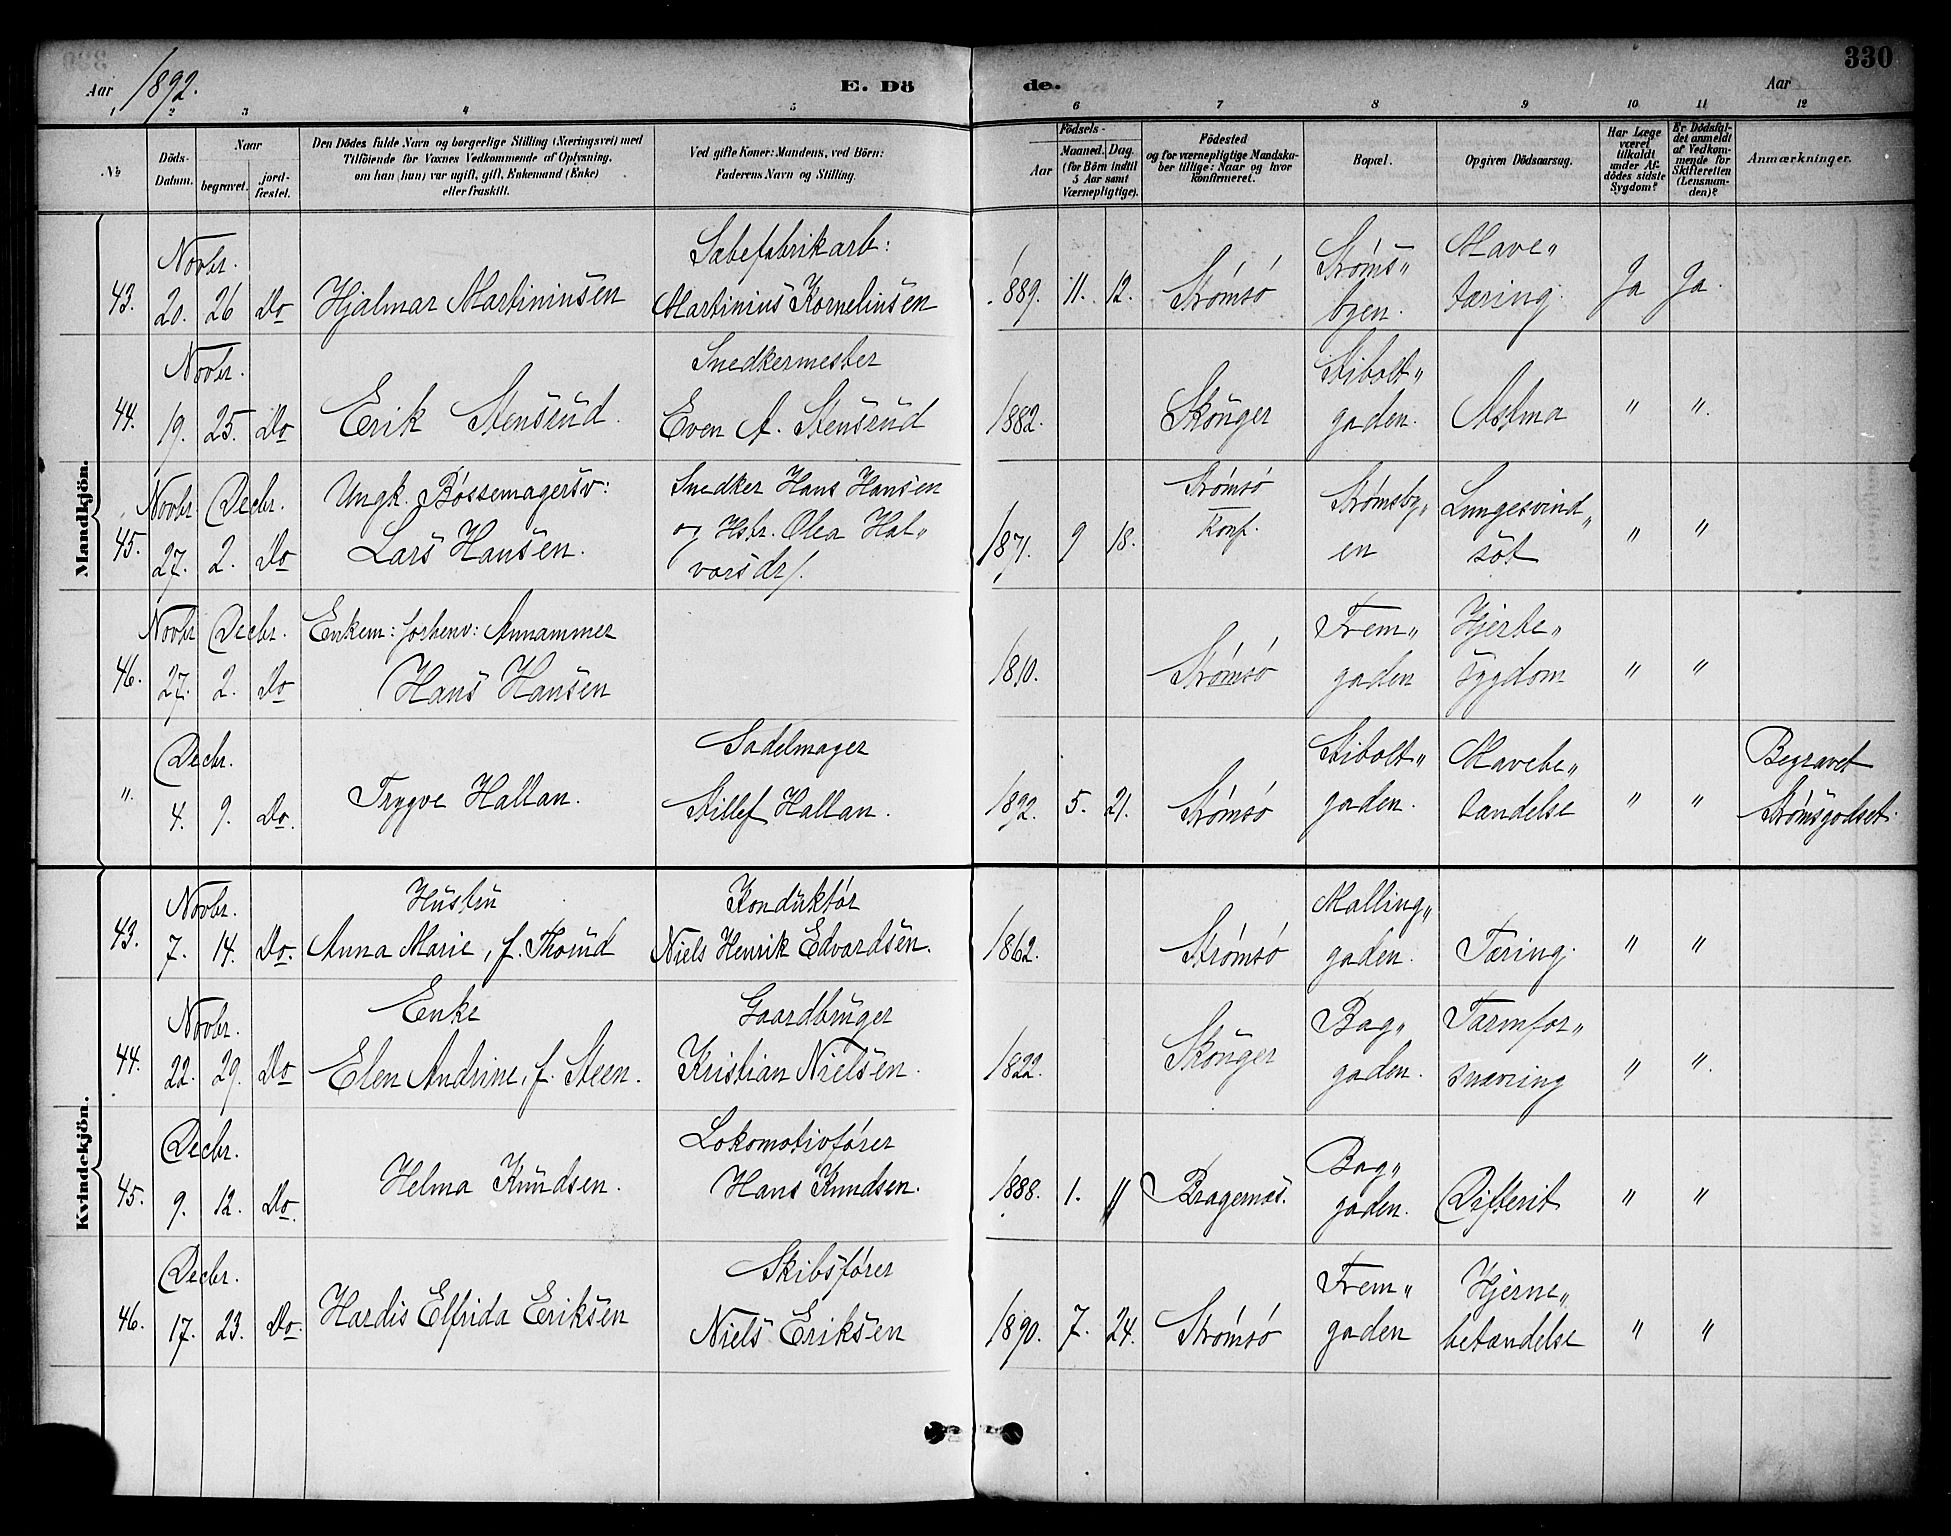 330
Aar 1892. E. Dö de. Aar
1 2 3 4 5 6 7 8 9 10 11 12
№
Döds-
Datum.
Naar
begravet.
jord-
fæstet.
Den Dödes fulde Navn og borgerlige Stilling (Næringsvei) med
Tilföiende for Voxnes Vedkommende af Oplysning,
om han (hun) var ugift, gift, Enkemand (Enke)
eller fraskilt.
Ved gifte Koner: Mandens, ved Börn:
Faderens Navn og Stilling.
Födsels-
Aar
Maaned. Dag.
(for Börn indtil
5 Aar samt
Værnepligtige).
Födested
og for værnepligtige Mandska-
ber tillige: Naar og hvor
konfirmeret.
Bopæl.
Opgiven Dödsaarsag.
Har Læge
været
tilkaldt
under Af-
dödes sidste
Sygdom?
Er Dödsfal-
det anmeldt
af Vedkom-
mende for
Skifteretten
(Lensman-
den)?
Anmærkninger.
Mandkjön.
Novbr. Sæbefabrikarb: Strøms„ Mave„
43. 20. 26 Do Hjalmar Martiniusen Martinius Kornelinsen 1889. 11. 12. Strømsø byen. tæring. Ja Ja.
Novbr. Snedkermester Stibolt„
44. 19. 25. Do Erik Stensrud. Even A. Stensrud 1882. Skouger gaden. Astma " ".
Novbr Decbr. Ungk. Bøssemagersv: Snedker Hans Hansen Strømsø Strømsby„ Lungesvind„
45. 27. 2. Do Lars Hansen. og Hstr. Olea Hal„ 1871. 9 18. Konf. en sot " "
vorsdr/.
Novbr Decbr. Enkem: forhenv: Annammer Frem„ Hjerte„
46. 27. 2. Do Hans Hansen 1810. Strømsø gaden sygdom " "
Decbr. Sadelmager Stibolt„ Mavebe„ Begravet
". 4. 9. Do. Trygve Hallan. Stillef Hallan. 1892. 5. 21. Strømsø gaden. tændelse " " Strømsgodset.
Kvindekjön.
Novbr. Hustru Konduktør Malling„
43. 7. 14. Do. Anna Marie, f. Thorud Niels Henrik Edvardsen. 1862. Strømsø gaden. Tæring. " "
Novbr. Enke Gaardbruger Bag„ Tarmfor„
44. 22. 29. Do Elen Andrine, f. Steen. Kristian Nielsen. 1822. Skouger gaden. snævring " ".
Decbr. Lokomotivfører Bag„
45. 9. 12. Do. Helma Knudsen. Hans Knudsen. 1888. 1. 11 Bragernæs. gaden. Difterit " "
Decbr. Skibsfører Frem„ Hjerne„
46. 17. 23. Do. Hardis Elfrida Eriksen Niels Eriksen 1890. 7. 24. Strømsø gaden betændelse " "